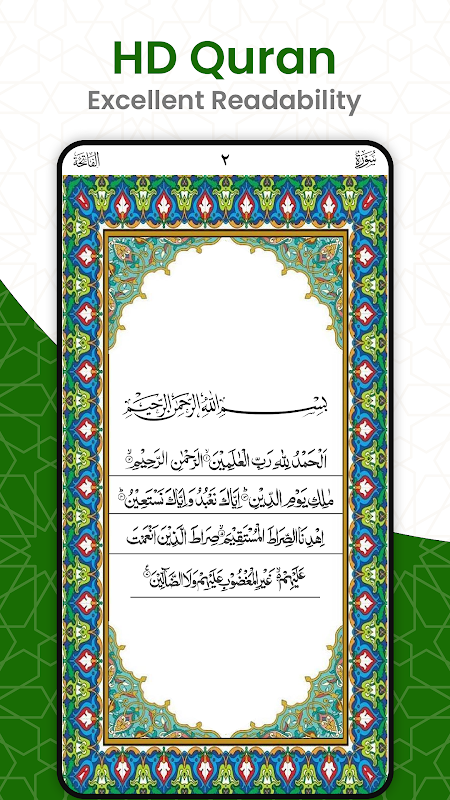 HD Quran
Excellent Readability
سُوْرَةُ ٢ الفَاتِحَة
بِسْمِ اللهِ الرَّحْمٰنِ الرَّحِيْمِ
اَلْحَمْدُ لِلّٰهِ رَبِّ الْعٰلَمِيْنَ الرَّحْمٰنِ الرَّحِيْمِ
مٰلِكِ يَوْمِ الدِّيْنِ اِيَّاكَ نَعْبُدُ وَاِيَّاكَ نَسْتَعِيْنُ
اِهْدِنَا الصِّرَاطَ الْمُسْتَقِيْمَ صِرَاطَ الَّذِيْنَ اَنْعَمْتَ
عَلَيْهِمْ غَيْرِ الْمَغْضُوْبِ عَلَيْهِمْ وَلَا الضَّآلِّيْنَ